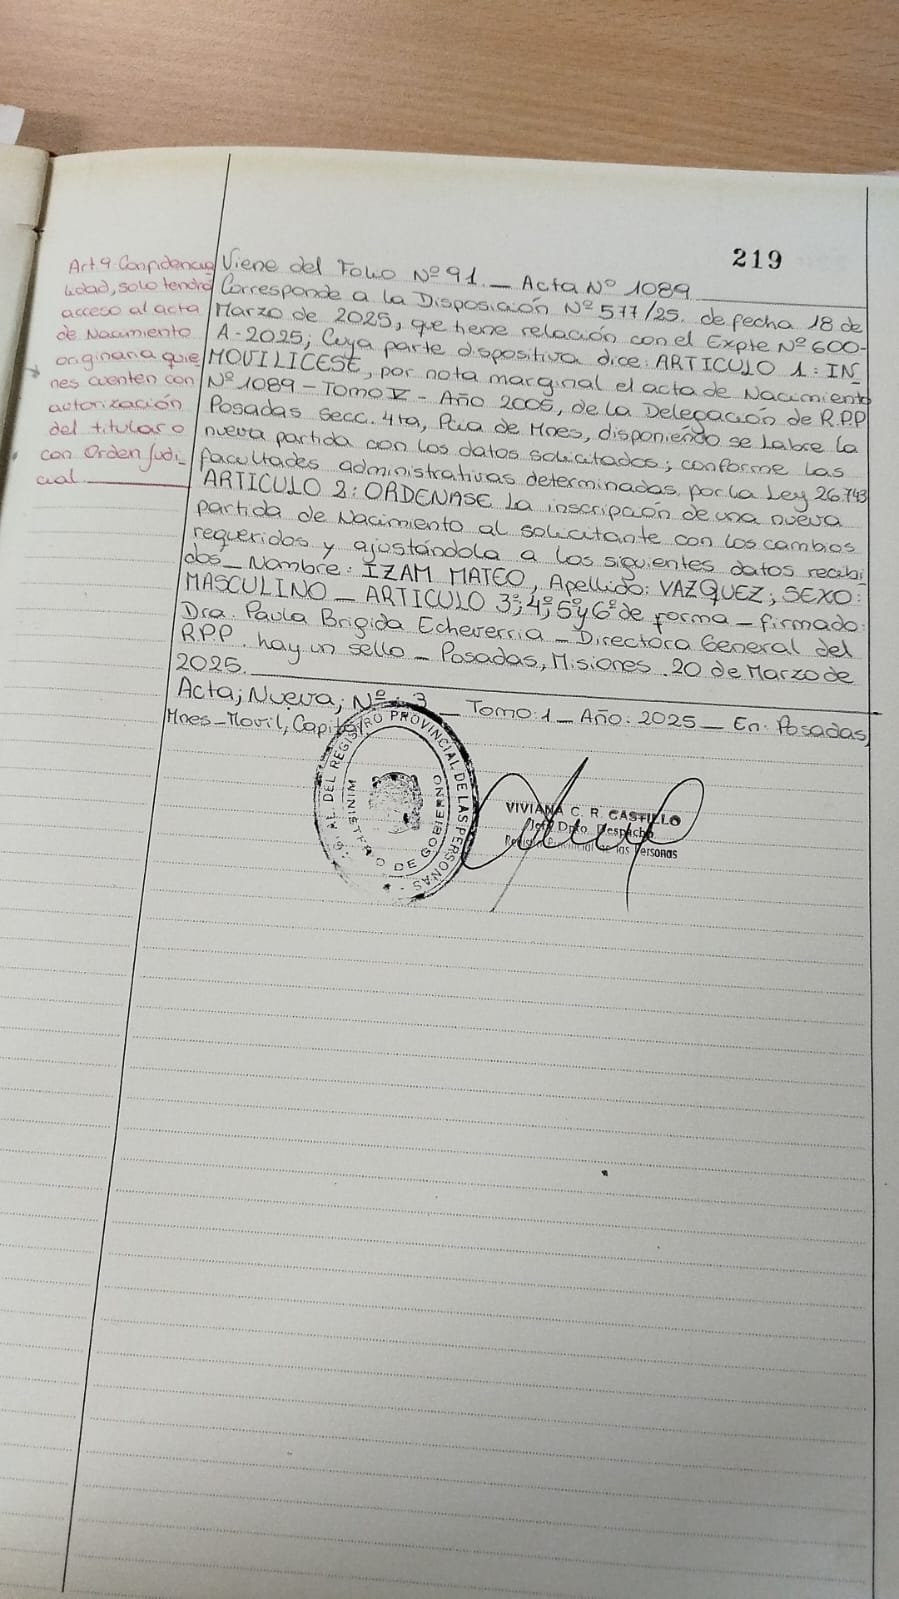 219
Art 9 Confidencia
lidad, solo tendrá
acceso al acta
de Nacimiento
originaria quie
nes cuenten con
autorización
del titular o
con Orden Judi
cial.
Viene del Folio Nº 91._ Acta Nº 1089
Corresponde a la Disposición Nº 577/25. de fecha 18 de
Marzo de 2025, que tiene relación con el Expte Nº 600-
A-2025; Cuya parte dispositiva dice: ARTICULO 1: IN_
MOVILICESE, por nota marginal el acta de Nacimiento
Nº 1089 - Tomo V - Año 2005, de la Delegación de R.P.P
Posadas Secc. 4ta, Pcia de Mnes, disponiendo se Labre la
nueva partida con los datos solicitados; conforme las
facultades administrativas determinadas por la Ley 26.743
ARTICULO 2: ORDENASE la inscripción de una nueva
partida de Nacimiento al solicitante con los cambios
requeridos y ajustándola a los siguientes datos recibi
dos_ Nombre: IZAM MATEO, Apellido: VAZQUEZ; SEXO:
MASCULINO _ ARTICULO 3º; 4º; 5º y 6º de forma - firmado:
Dra. Paula Brigida Echeverria - Directora General del
R.P.P. hay un sello - Posadas, Misiones. 20 de Marzo de
2025.
Acta; Nueva; Nº: 3 _ Tomo: 1 _ Año: 2025 _ En: Posadas,
Mnes-Movil, Capital
DEL REGISTRO PROVINCIAL DE LAS PERSONAS
MINISTERIO DE GOBIERNO
VIVIANA C. R. CASTILLO
Jefe Dpto. Despacho
Registro Provincial de las Personas